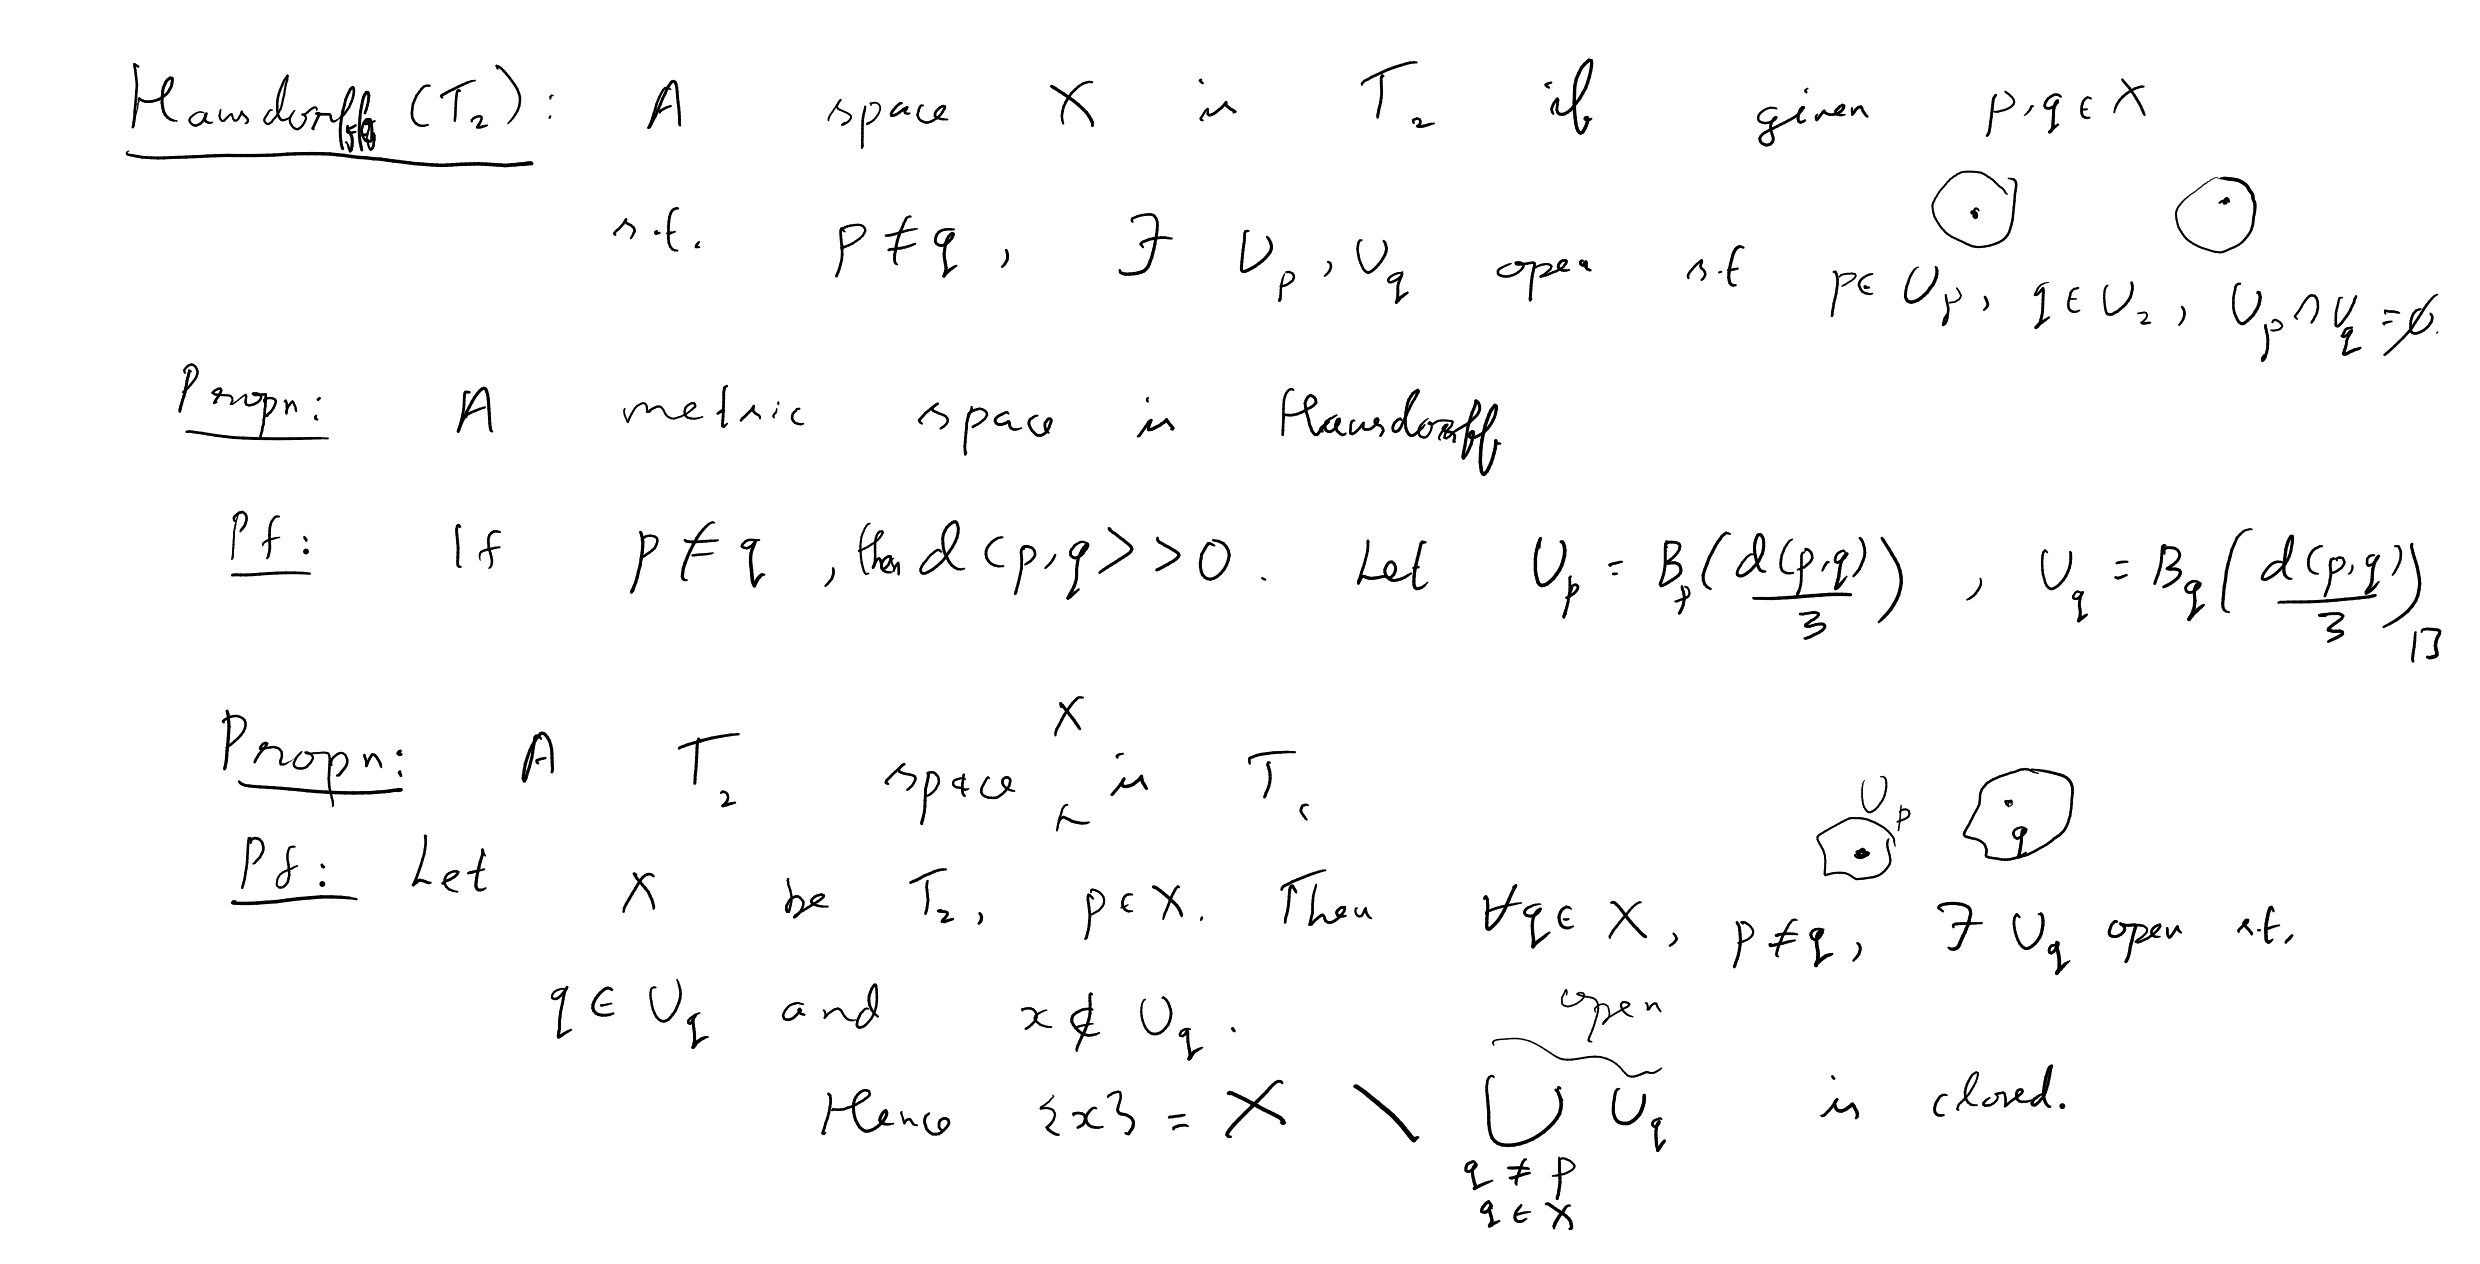 Hausdorff (T₂): A space X is T₂ if given p,q ∈ X
s.t. p ≠ q, ∃ U_p, U_q open s.t p ∈ U_p, q ∈ U_2, U_p ∩ U_q = ∅.
Propn: A metric space is Hausdorff
Pf: If p ≠ q, then d(p,q) > 0. Let U_p = B_p(d(p,q)/3), U_q = B_q(d(p,q)/3) □
X
Propn: A T₂ space is T₁
U_p q
Pf: Let X be T₂, p ∈ X. Then ∀q ∈ X, p ≠ q, ∃ U_q open s.t.
q ∈ U_q and x ∉ U_q.
open
Hence {x} = X \ ⋃ U_q is closed.
q ≠ p
q ∈ X